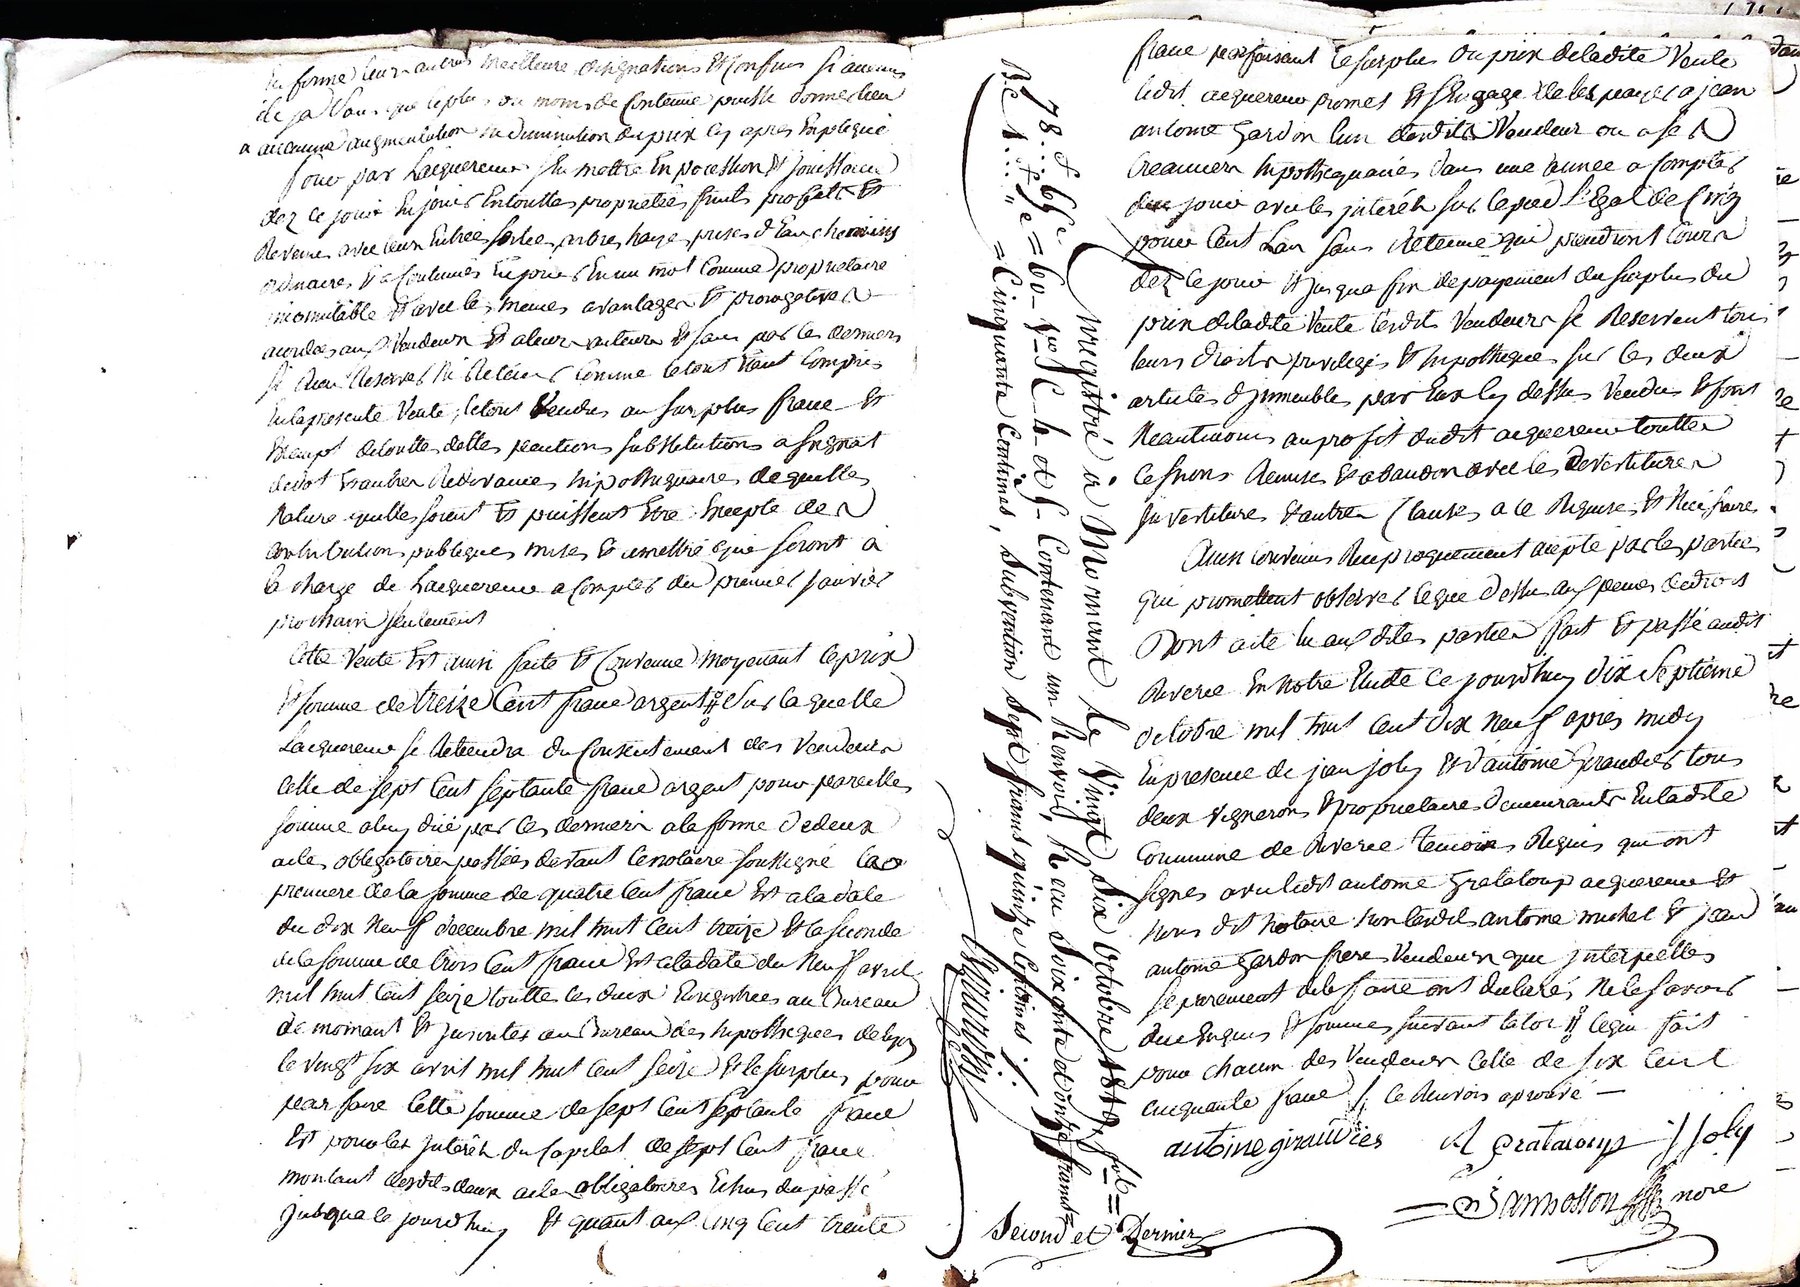 la forme leurs autres meilleure designations et confins si aucuns
il y a sans que le plus ou moins de contenue puisse donner lieu
a aucunne augmentation ni diminution du prix cy apres Expliqué
pour par Lacquereur sen mettre En pocession et jouissance
dez ce jour En jouir En touttes proprietées fruits profits et
Revenus avec leurs Entrées sorties arbres hayes prises d'Eau chemins
ordinaires et accoutumés En jouir En un mot Comme proprietaire
incomutable et avec les memes avantages et prerogatives
acordés aux Vendeurs et a leurs auteurs et sans par les derniers
si Rien Reserver ni Retenir Comme le tout Etant Compris
En la presente Vente, le tout Vendu au surplus franc et
Exempt de touttes dettes pentions substitutions assignat
de dot et autres Redevances hipothequaires de quelles
Nature quelles soient et puissent Etre Excepte des
contributions publiques mises et a mettre que seront a
la charge de Lacquereur a compter du premier janvier
prochain seulement
Cette Vente Est ainsi faite et Convenue moyenant le prix
et somme de treize Cent franc argent sur laquelle
Lacquereur se Retiendra du Consentement des Vendeurs
Celle de sept Cent septante franc argent pour pareille
somme a luy düe par ces derniers a la forme de deux
actes obligatoires passées devant le notaire soussigné la
premiere de la somme de quatre Cent franc Est a la date
du dix Neuf decembre mil huit Cent treize et la seconde
de la somme de trois Cent franc Est a la date du Neuf avril
mil huit Cent seize touttes les deux Enregistrées au Bureau
de mornant et inscrites au Bureau des hipotheques de Lyon
le vingt six avril mil huit Cent seize et le surplus pour
par faire Cette somme de sept Cent septante franc
Est pour les interets du Capital de sept Cent franc
montant desdits deux actes obligatoires Echus du passé
jusqua ce jourd'huy et quant aux Cinq Cent trente
franc parfaisant le surplus du prix de la dite Vente
ledit acquereur promet et s'Engage de les payer a jean
antoine Gardon l'un desdits Vendeur ou a ses
Creanciers hipothequaires dans une année a compter
de ce jour avec les interets sur le pied L'Egal de Cinq
pour Cent L'an sans Retenue qui prendront Cours
dez ce jour et jusqua fin de payement du surplus du
prix de la dite Vente lesdits Vendeurs se Reservent tous
leurs droits privileges et hipotheques sur les deux
articles d'jmeubles par Eux cy dessus Vendus et font
Neantmoins au profit dudit acquereur touttes
Cessions Remises et abandon avec les Devestitures
jnvestitures et autres Clauses a ce Requises et Necessaires
Ainsi Convenu Reciproquement accepté par les parties
qui promettent observer ce que dessus aux peines de droit
Dont acte lu aux dites parties fait et passé audit
Riverie En notre Etude ce jourd'huy dix septieme
octobre mil huit Cent dix Neuf apres midy
En presence de jean joly et d'antoine Giraudier tous
deux vignerons et proprietaires demeurants En la dite
Commune de Riverie temoins Requis qui ont
signés avec ledit antoine Grataloup acquereur et
Nous dit Notaire Non lesdits antoine michel et jean
antoine Gardon freres Vendeurs que interpellés
separement de le faire ont declarés Ne le savoir
due Enquis et sommés suivant la loi ce qui fait
pour chacun des Vendeurs Celle de six Cent
cinquante franc le Renvois aprouvé —
antoine giraudier A Grataloup J Joly
Bannosson nore
Second et Dernier
Enregistré à Mornant le Vingt Six Octobre 1819, fol =
78. & 69. = 60 - Vso C 4 et 5 Contenant un Renvoi, Recu Soixante et onze francs =
= Cinquante Centimes, Subvention Sept francs quinze Centimes